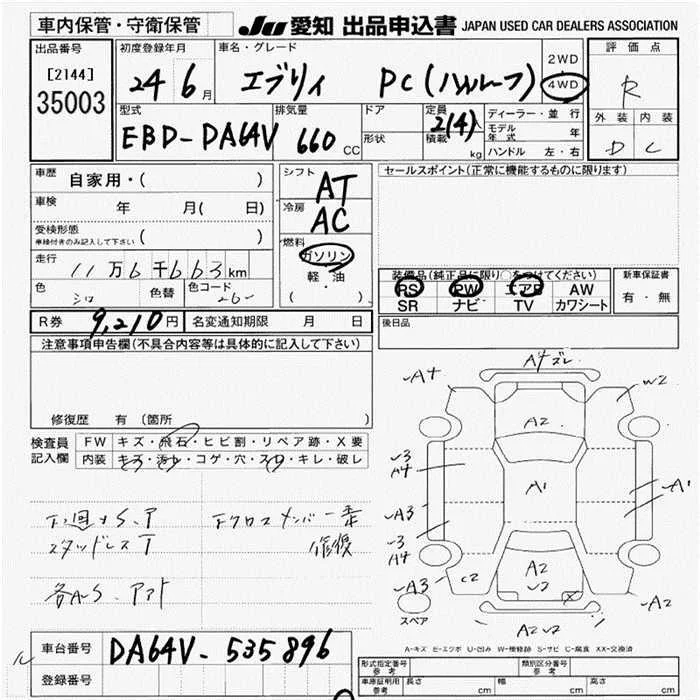 車内保管・守衛保管
JU 愛知 出品申込書 JAPAN USED CAR DEALERS ASSOCIATION
出品番号
[2144]
35003
初度登録年月
24 6月
車名・グレード
エブリィ PC(ハイルーフ)
2WD
4WD
評価点
R
外装 内装
D C
型式
EBD-DA64V
排気量
660 CC
ドア
形状
定員 2(4)
積載 kg
ディーラー・並行
モデル年式 年
ハンドル 左・右
車歴 自家用・( )
車検 年 月( 日)
受検形態
車検付きのみ記入して下さい ( )
走行 11万6千663km
色 シロ 色替 色コード 26-
シフト AT
冷房 AC
燃料
ガソリン
軽・油
( ・ )
セールスポイント(正常に機能するものに限ります)
装備品(純正品に限り○をつけてください)
RS PW エアB AW
SR ナビ TV カワシート
新車保証書
有・無
R券 9,210円 名変通知期限 月 日
後日品
注意事項申告欄(不具合内容等は具体的に記入して下さい)
修復歴 有 (箇所
検査員記入欄
FW キズ・飛石・ヒビ割・リペア跡・X要
内装 キズ・汚れ・コゲ・穴・スレ・キレ・破レ
スタッドレスT
Fクロスメンバー一部
修復
A4ズレ
A4
W2
A2
A4
A1
A1
A3
A4
A3
C2
A2
A2
スペア
A-キズ E-エクボ U-凹み W-補修跡 S-サビ C-腐食 XX-交換済
車台番号 DA64V-535896
登録番号
形式指定番号 参考
類別区分番号 参考
車庫証明用 参考 長さ cm 幅 cm 高さ cm